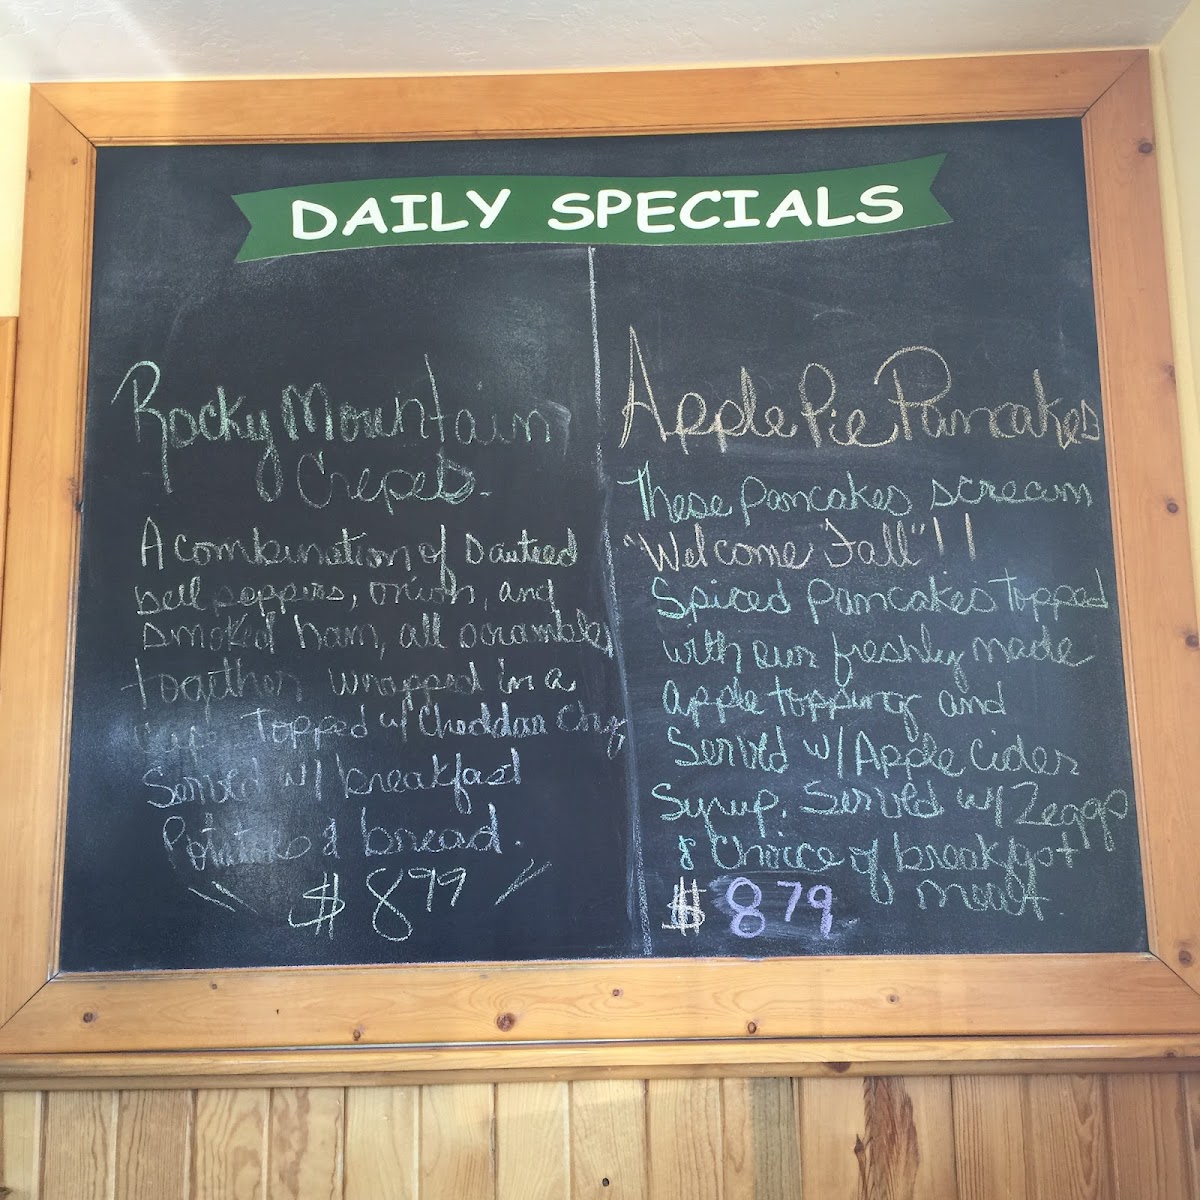 DAILY SPECIALS
Rocky Mountain
Crepes.
A combination of sauteed
bell peppers, onion, and
smoked ham, all scrambled
together wrapped in a
Topped w/ Cheddar Chz
Served w/ breakfast
Potatoes & bread.
$8.99
Apple Pie Pancakes
These pancakes scream
"Welcome Fall"!!
Spiced pancakes topped
with our freshly made
apple topping and
Served w/ Apple Cider
Syrup. Served w/ 2eggs
& Choice of breakfast
meat.
$8.79